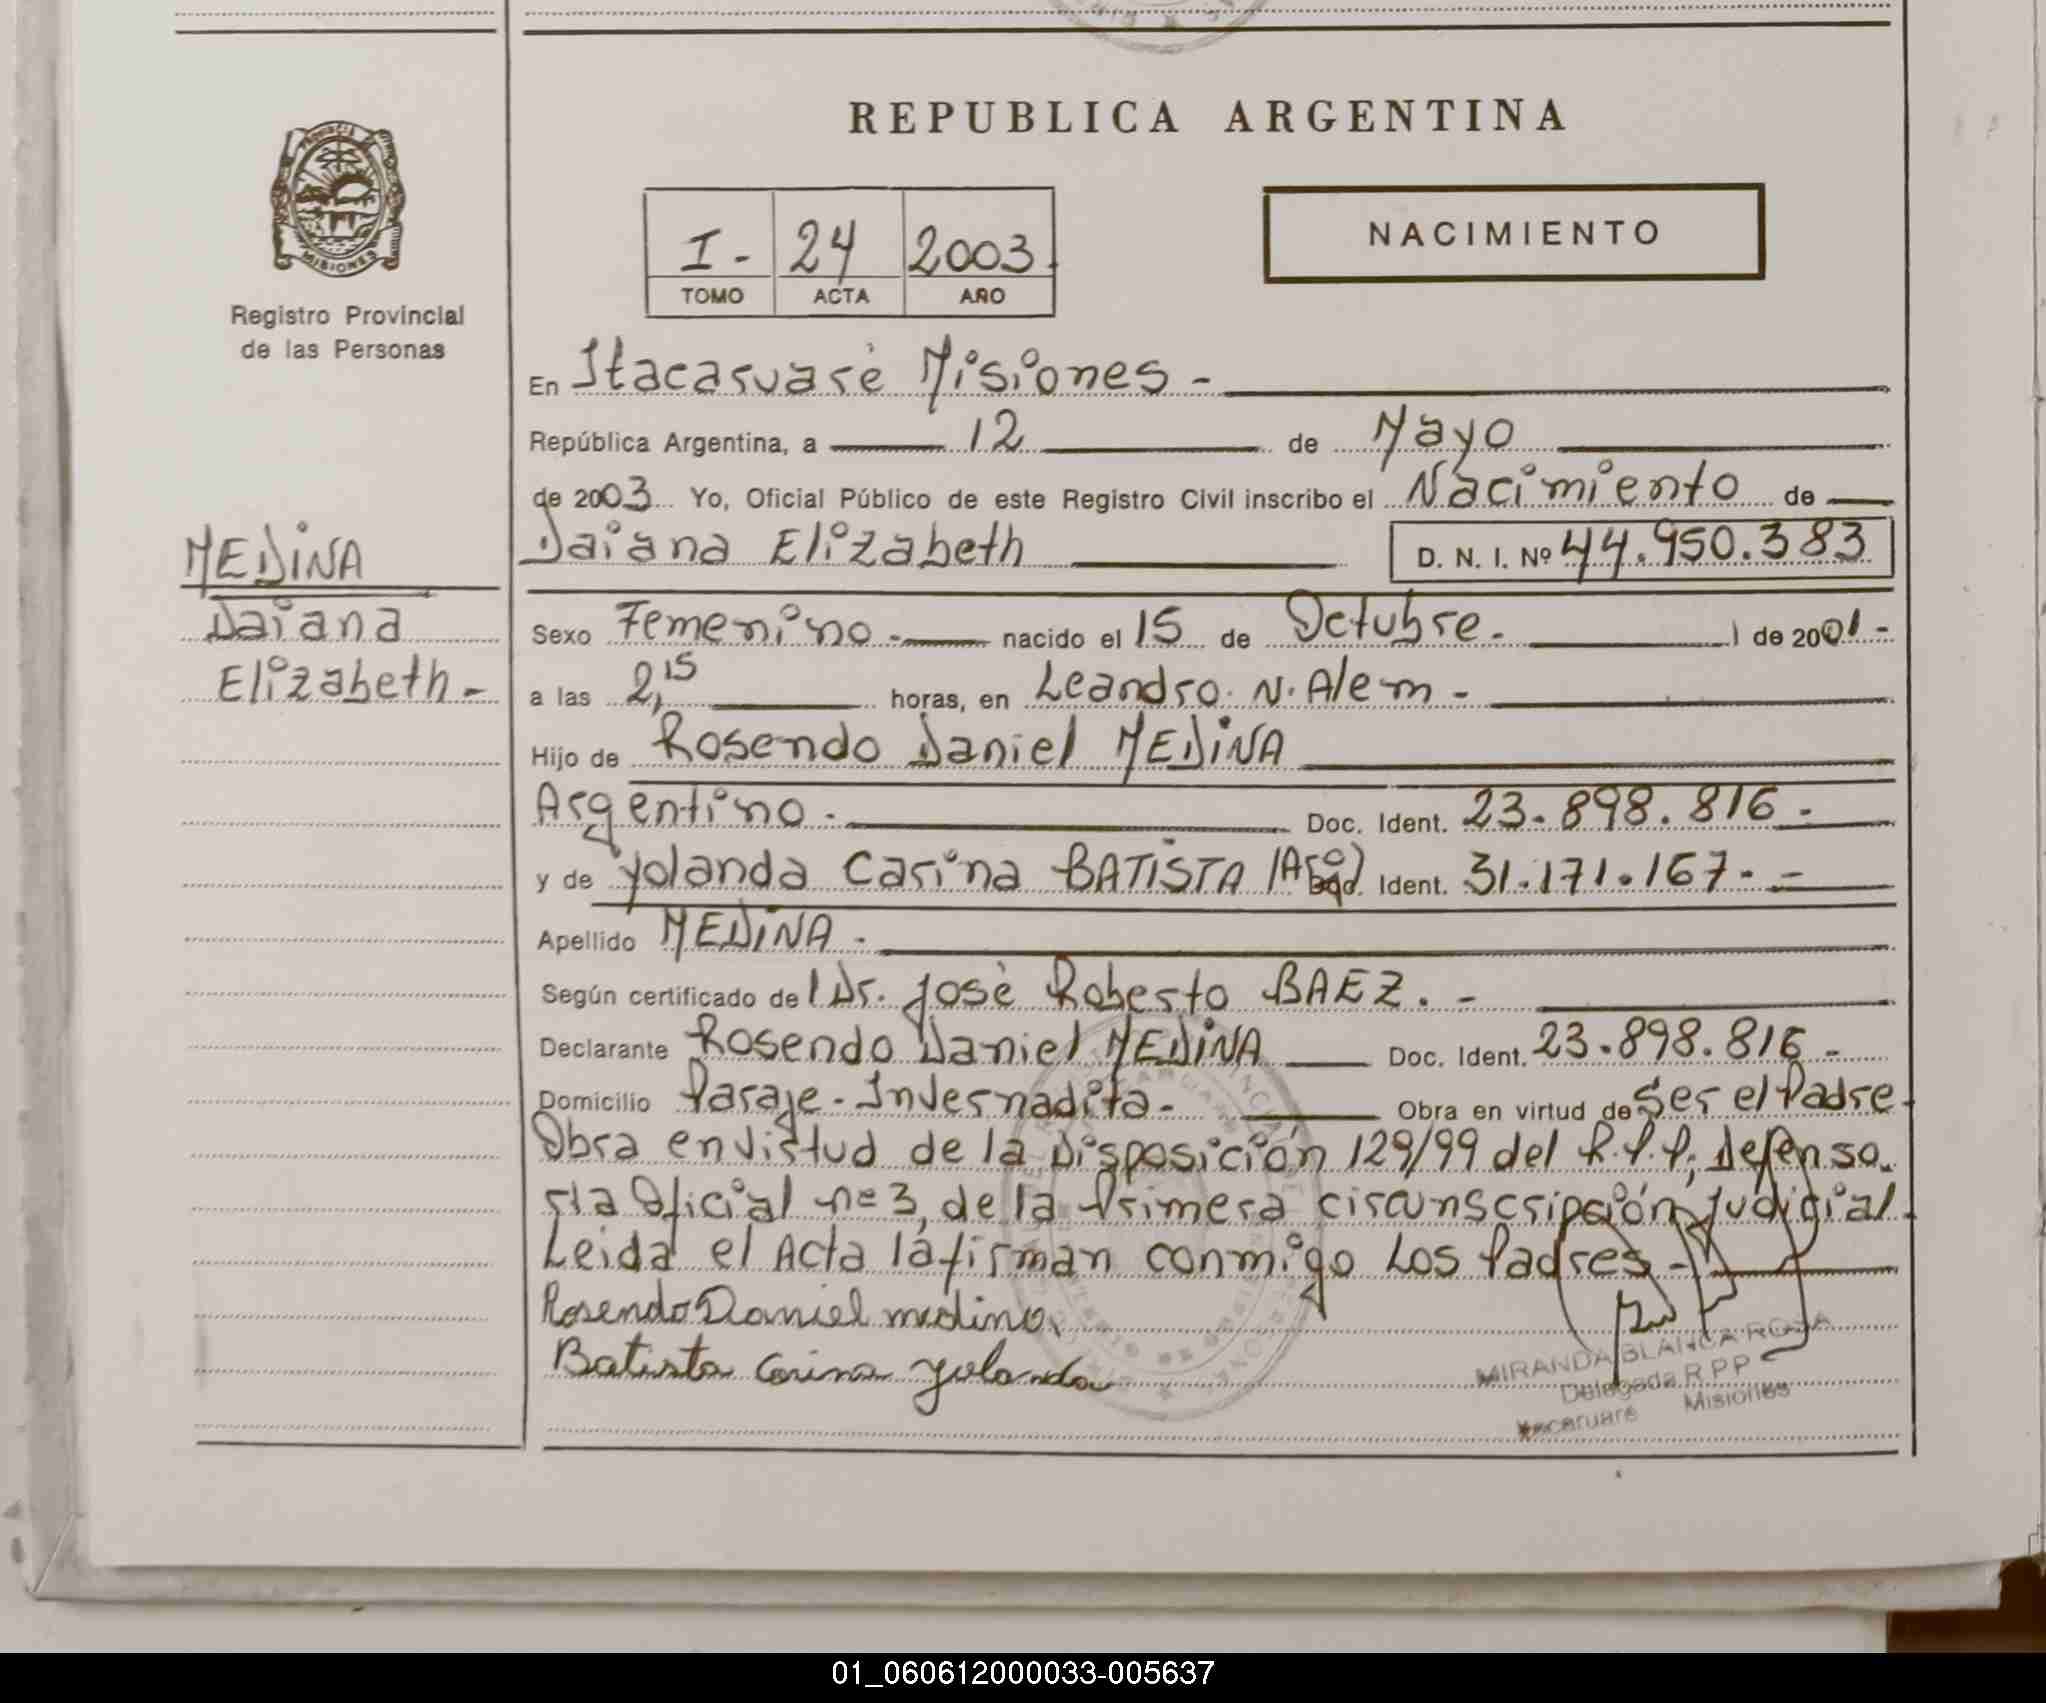 REPUBLICA ARGENTINA
PROVINCIA
MISIONES
Registro Provincial
de las Personas
I - 24 2003.
TOMO ACTA AÑO
NACIMIENTO
En Itacaruaré Misiones -
República Argentina, a 12 de Mayo
de 2003 Yo, Oficial Público de este Registro Civil inscribo el Nacimiento de
Daiana Elizabeth D. N. I. Nº 44.950.383
MEDiNA
Daiana
Elizabeth -
Sexo Femenino - nacido el 15 de Octubre. de 2001 -
a las 2,15 horas, en Leandro. N. Alem -
Hijo de Rosendo Daniel MEDiNA
Argentino. Doc. Ident. 23.898.816 -
y de Yolanda Carina BATiSTA (Arg) Doc. Ident. 31.171.167. -
Apellido MEDiNA.
Según certificado de l Dr. José Roberto BAEZ. -
Declarante Rosendo Daniel MEDiNA Doc. Ident. 23.898.816 -
Domicilio Paraje - Invernadita - Obra en virtud de Ser el Padre.
Obra en virtud de la Disposición 129/99 del R.P.P, Defenso.
ria Oficial nº 3, de la Primera circunscripción judicial.
Leida el Acta la firman conmigo Los Padres -
Rosendo Daniel medina.
Batista Carina Yolanda
MIRANDA BLANCA ROSA
Delegada R P P
Itacaruaré Misiones
01_060612000033-005637